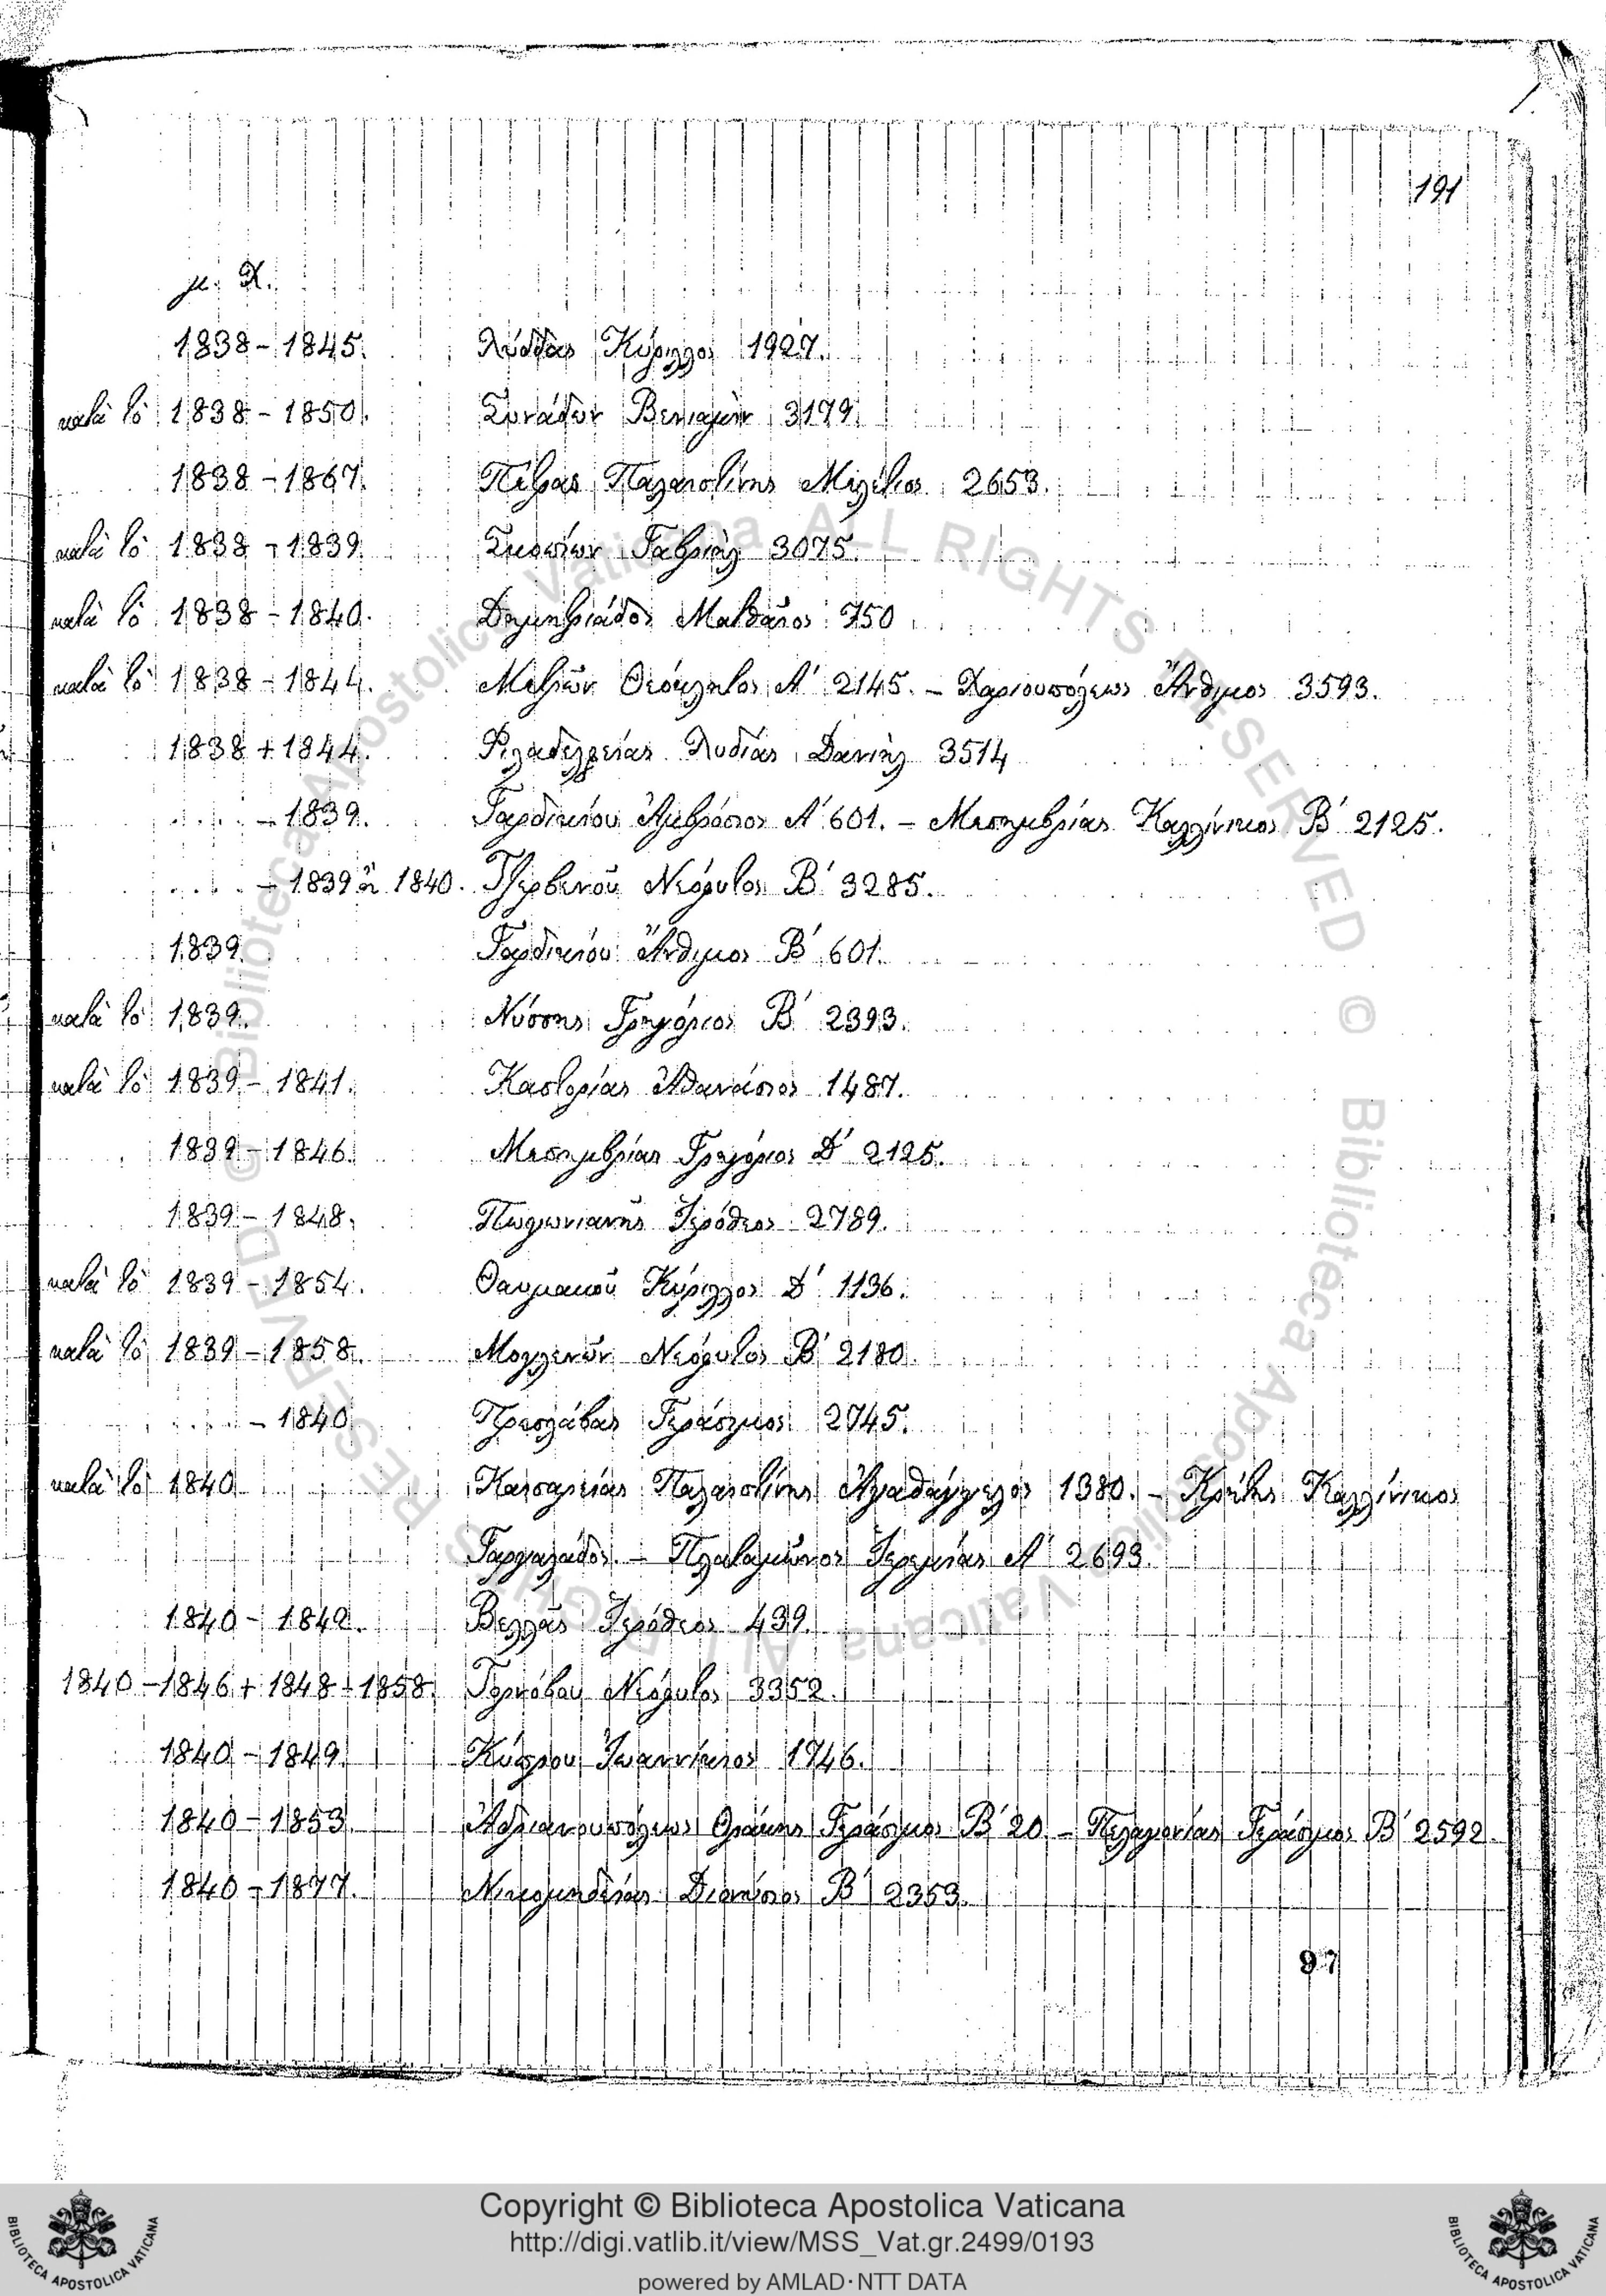 191
μ. Χ.
1838 – 1845. Λύδδας Κύριλλος 1927.
κατὰ τὸ 1838 – 1850. Συνάδων Βενιαμὶν 3179.
1838 – 1867. Πέτρας Παλαιστίνης Μελέτιος 2653.
κατὰ τὸ 1838 – 1839. Σκοπίων Γαβριὴλ 3075.
κατὰ τὸ 1838 – 1840. Δημητριάδος Ματθαῖος 750
κατὰ τὸ 1838 – 1844. Μετρῶν Θεόκλητος Α΄ 2145. – Χαριουπόλεως Ἄνθιμος 3593.
1838 + 1844. Φιλαδελφείας Λυδίας Δανιὴλ 3514
.... – 1839. Γαρδικίου Ἀμβρόσιος Α΄ 601. – Μεσημβρίας Καλλίνικος Β΄ 2125.
.... – 1839 ἢ 1840. Τζερβενοῦ Νεόφυτος Β΄ 3285.
1839. Γαρδικίου Ἄνθιμος Β΄ 601.
κατὰ τὸ 1839. Νύσσης Γρηγόριος Β΄ 2393.
κατὰ τὸ 1839 – 1841. Καστορίας Ἀθανάσιος 1487.
1839 – 1846. Μεσημβρίας Γρηγόριος Δ΄ 2125.
1839 – 1848. Πωγωνιανῆς Ἱερόθεος 2789.
κατὰ τὸ 1839 – 1854. Θαυμακοῦ Κύριλλος Δ΄ 1136.
κατὰ τὸ 1839 – 1858. Μογλενῶν Νεόφυτος Β΄ 2180.
.... – 1840. Πρεσλάβας Γεράσιμος 2745.
κατὰ τὸ 1840. Καισαρείας Παλαιστίνης Ἀγαθάγγελος 1380. – Κρήτης Καλλίνικος
Γαργαλάδος. – Πλαταμῶνος Ἱερεμίας Α΄ 2693.
1840 – 1842. Βελλᾶς Ἱερόθεος 439.
1840 – 1846 + 1848 – 1858. Τερνόβου Νεόφυτος 3352.
1840 – 1849. Κύπρου Ἰωαννίκιος 1746.
1840 – 1853. Ἀδριανουπόλεως Θράκης Γεράσιμος Β΄ 20 – Πελαγονίας Γεράσιμος Β΄ 2592.
1840 – 1877. Νικομηδείας Διονύσιος Β΄ 2353.
97
Copyright © Biblioteca Apostolica Vaticana
http://digi.vatlib.it/view/MSS_Vat.gr.2499/0193
powered by AMLAD·NTT DATA